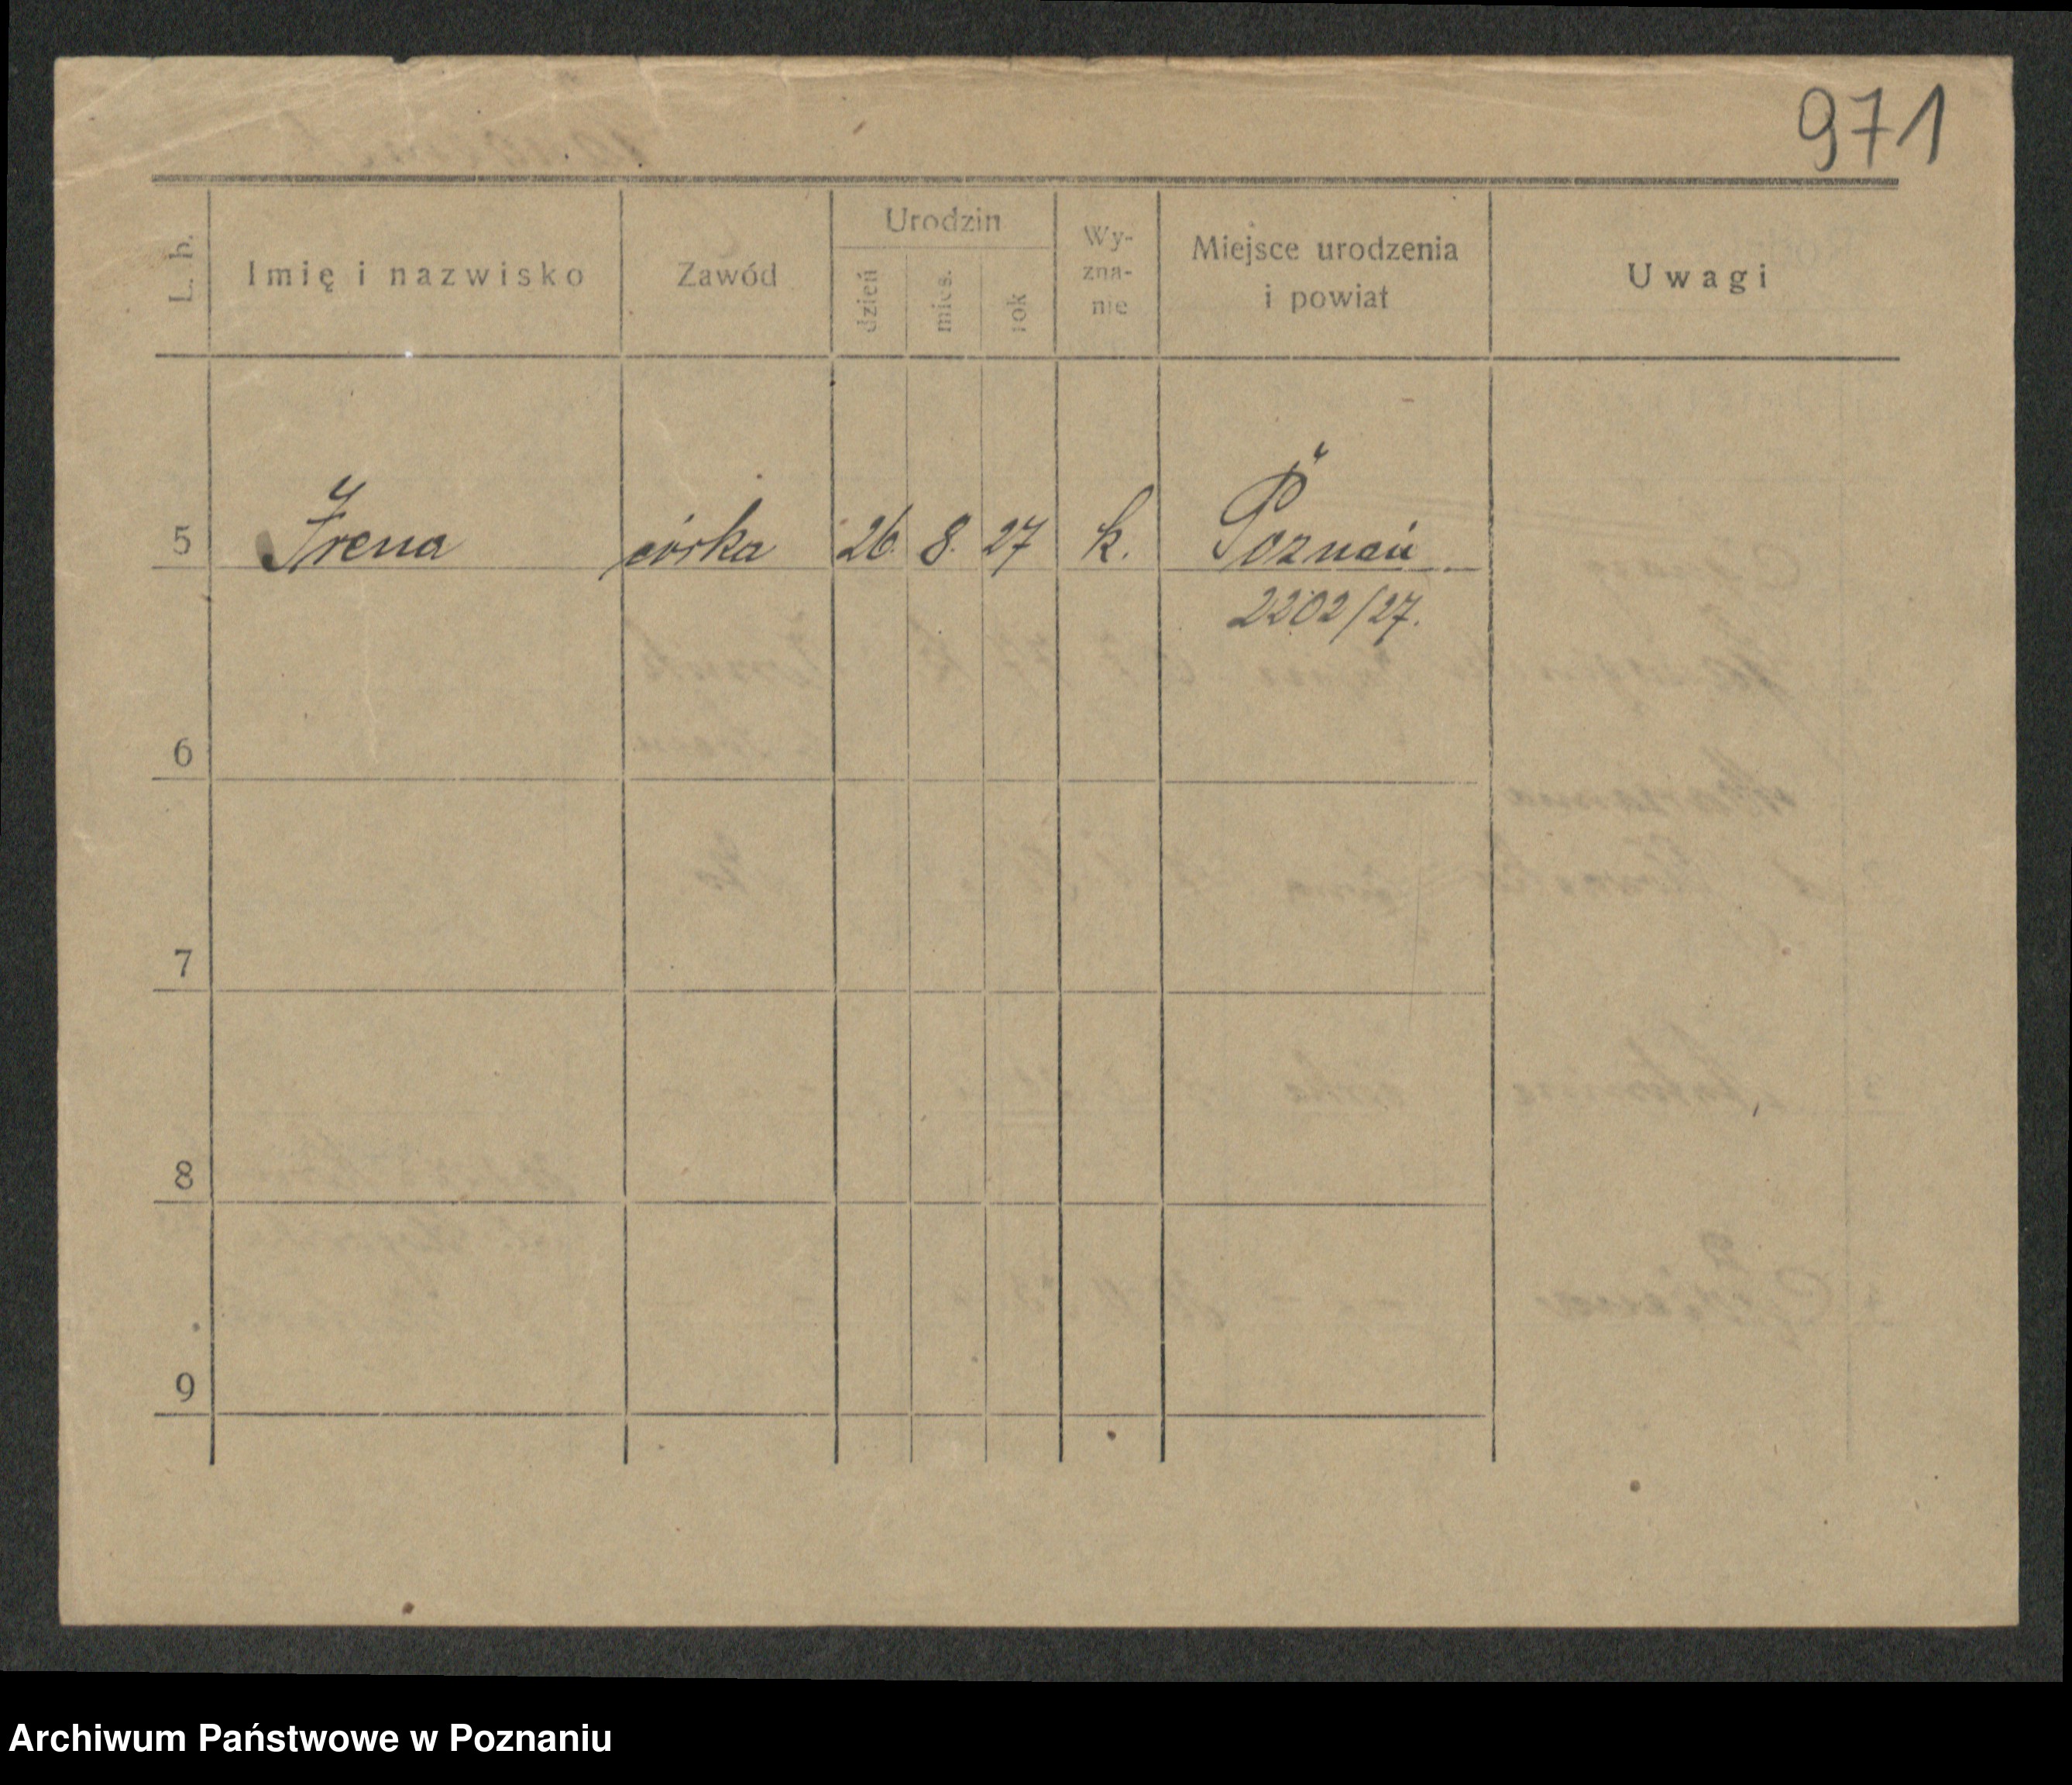 971
L. b. Imię i nazwisko Zawód Urodzin dzień mies. rok Wy-zna-nie Miejsce urodzenia i powiat Uwagi
5 Irena córka 26. 8. 27 k. Poznań
2202/27.
6
7
8
9
Archiwum Państwowe w Poznaniu